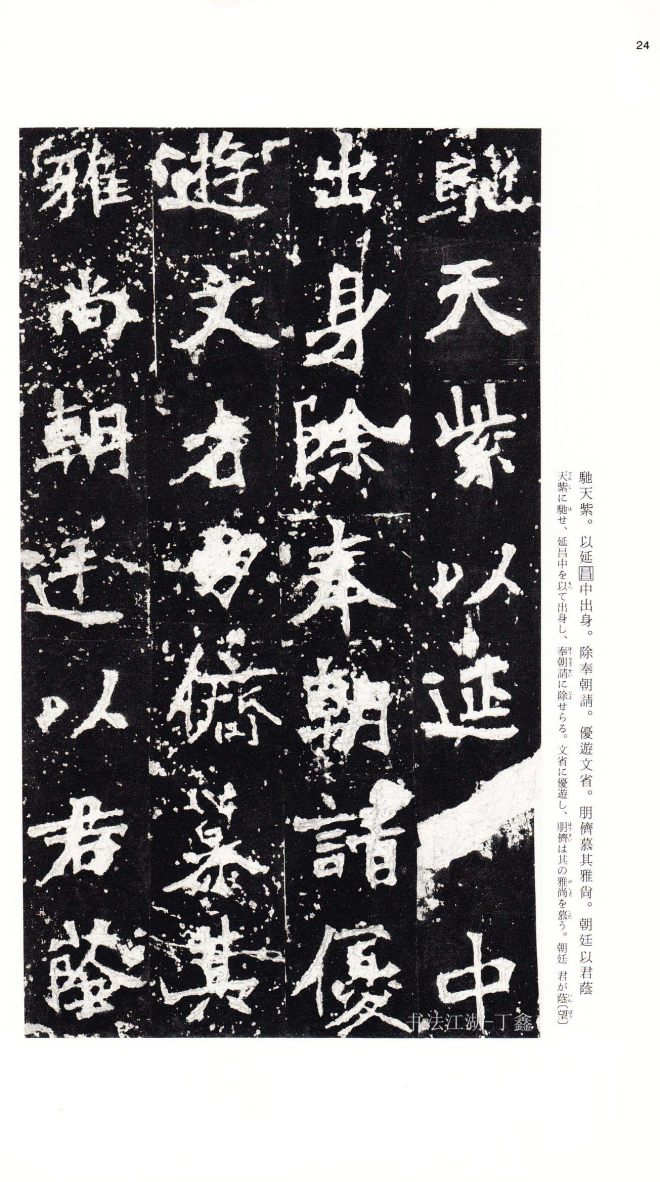 24
馳天紫以延中
出身除奉朝請優
遊文省朋儕慕其
雅尚朝廷以君蔭
馳天紫。以延昌中出身。除奉朝請。優遊文省。朋儕慕其雅尙。朝廷以君蔭
天紫に馳せ、延昌中を以て出身し、奉朝請に除せらる。文省に優遊し、朋儕は其の雅尚を慕う。朝廷 君が蔭〔望〕
书法江湖-丁鑫